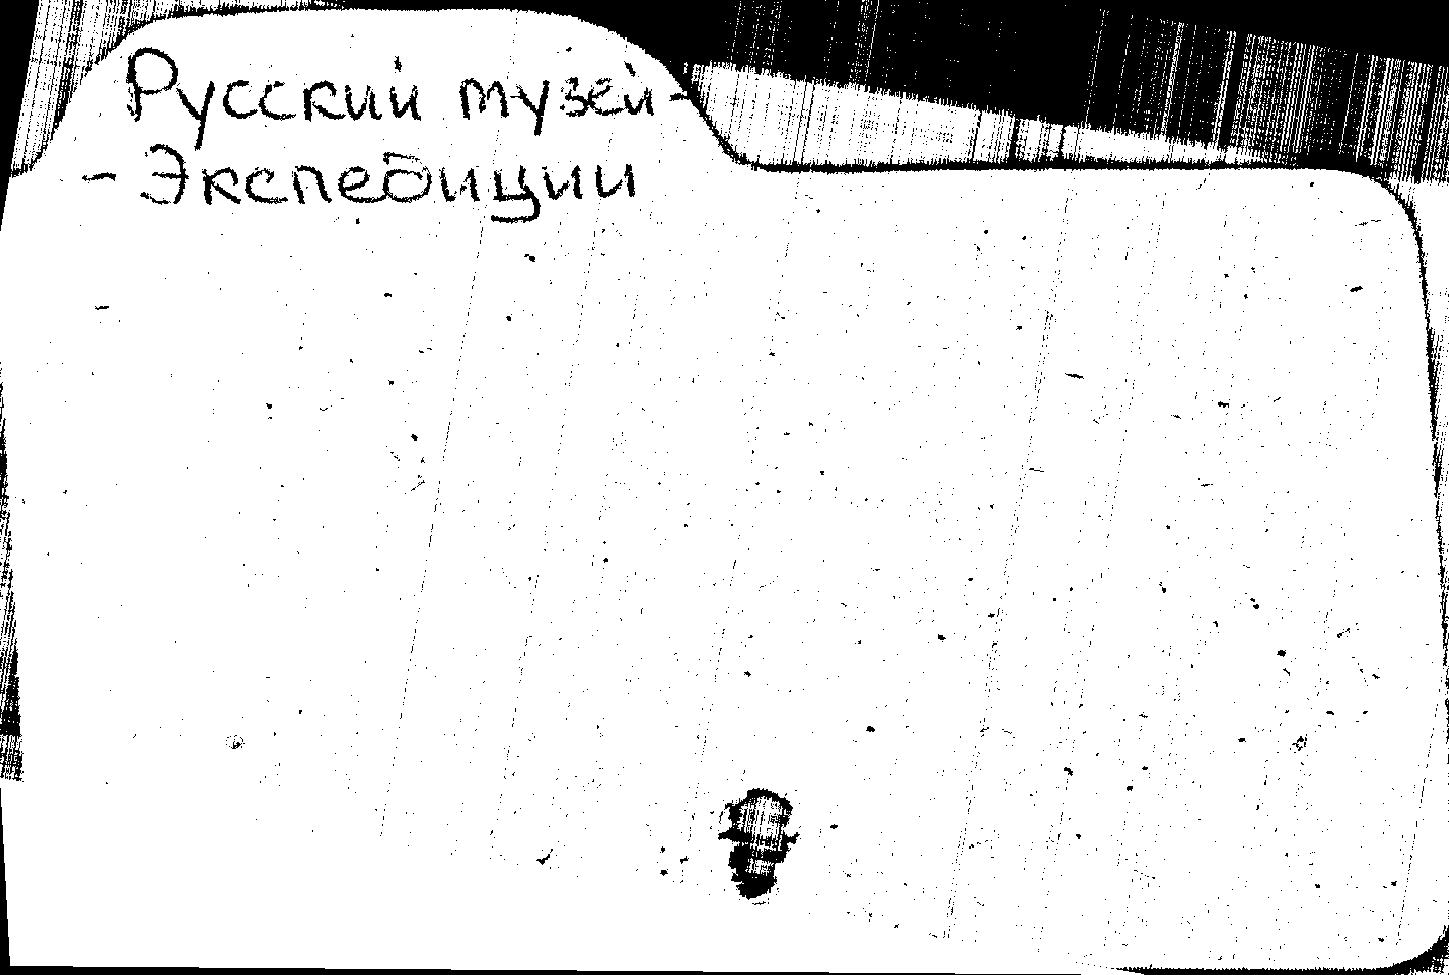 Русский музей -
- Экспедиции